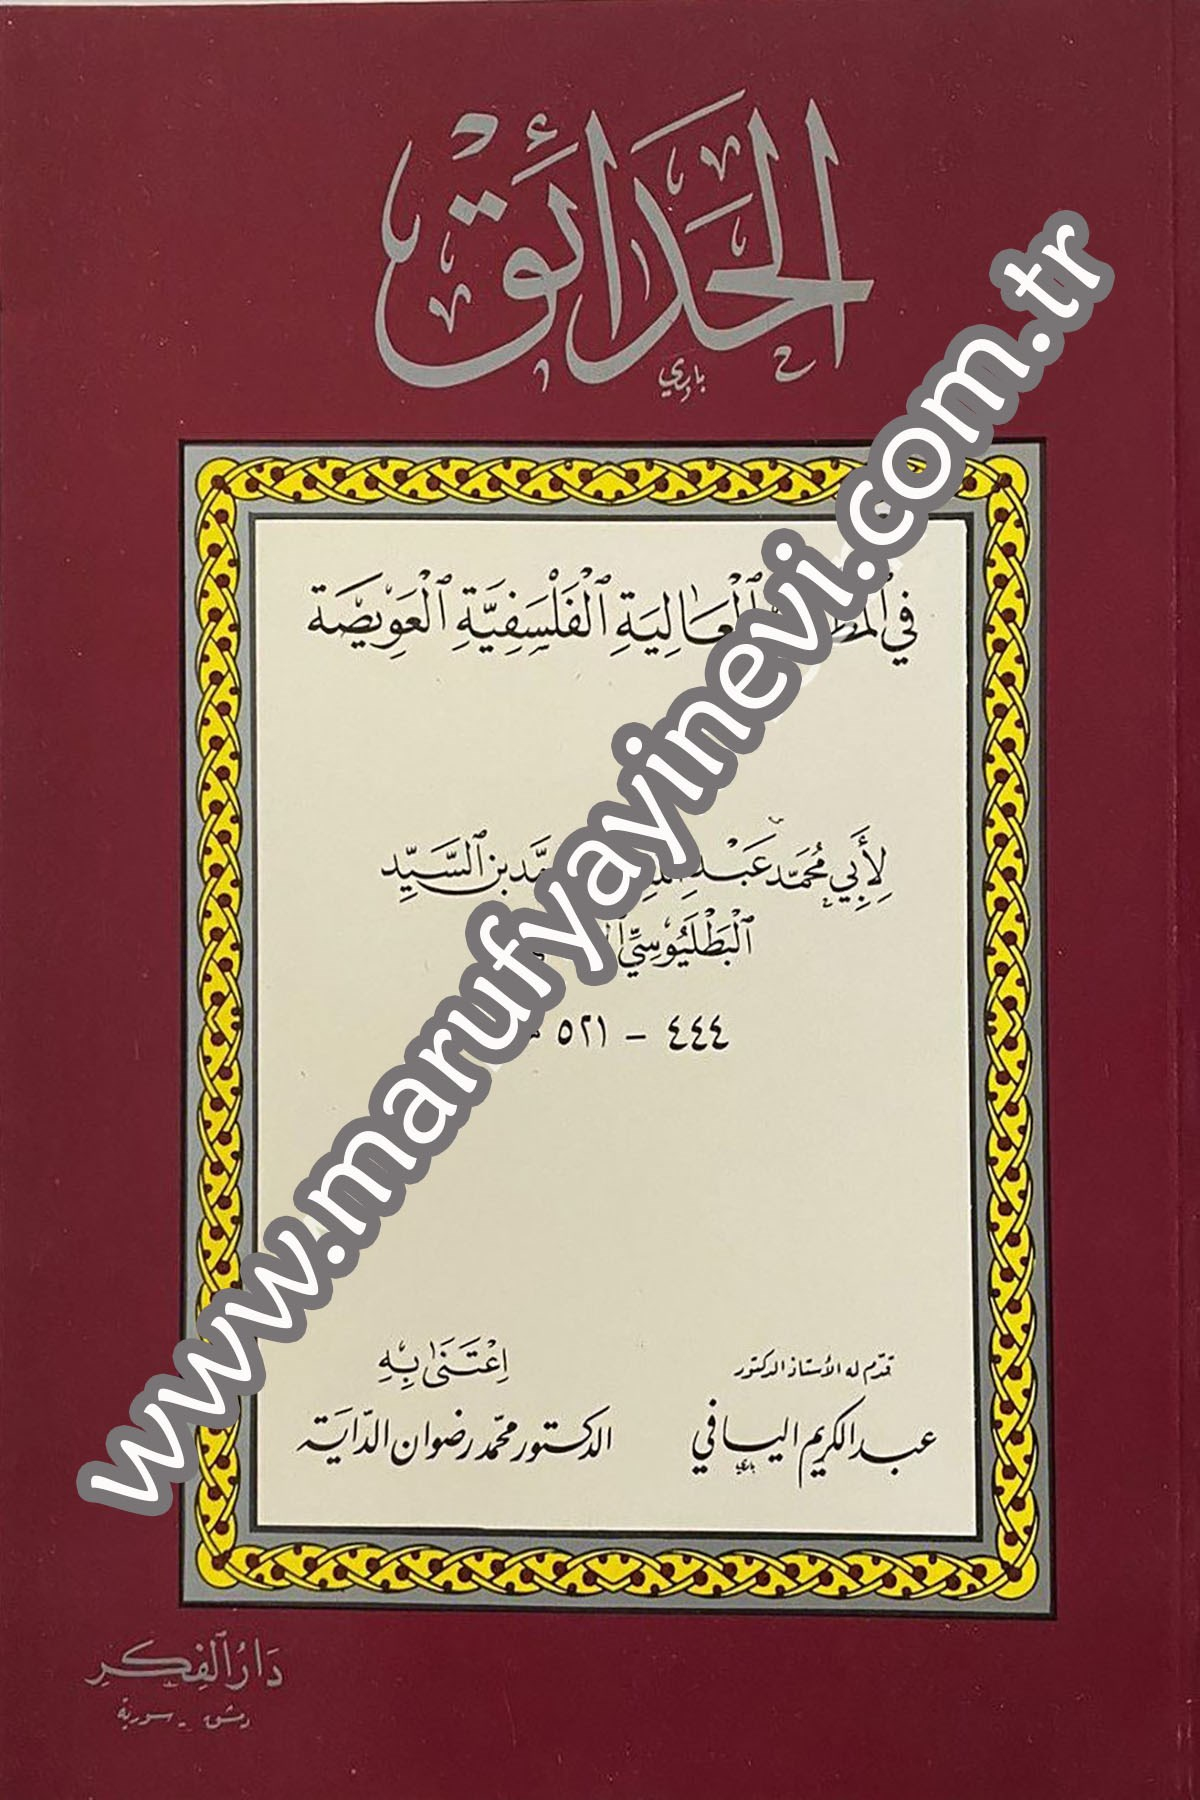 الحَدَائِق
باري
في المط الْعَالِيَةِ الْفَلْسَفِيَّةِ الْعَوِيصَة
لِأَبِي مُحَمَّد عَبْد بن السَّيِّد
الْبَطَلْيُوسِيِّ
٤٤٤ - ٥٢١ هـ
قدّم له الأستاذ الدكتور
عبد الكريم اليافي
باري
اِعْتَنَى بِهِ
الدكتور محمّد رضوان الدّاية
دَارُ الفِكر
دمشق - سورية
www.marufyayinevi.com.tr